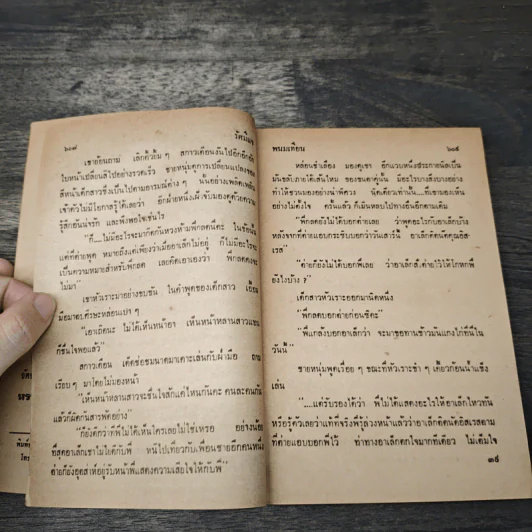 ๖๐๘
รัศมีแข
เขาย้อนถาม เลิกคิ้วยิ้ม ๆ สกาวเดือนงันไปอีกอึดใจ
ใบหน้าเปลี่ยนสีไปอย่างรวดเร็ว ชายหนุ่มดูการเปลี่ยนแปลงของ
สีหน้าเด็กสาวซึ่งเป็นไปตามอารมณ์ต่าง ๆ นั้นอย่างเพลิดเพลิน
เจ้าตัวไม่มีโอกาสรู้ได้เลยว่า อีกฝ่ายหนึ่งเฝ้าจับมองดูด้วยความ
รู้สึกอันน่ารัก และพึงพอใจเช่นไร
“ก็.....ไม่มีอะไรจะมากีดกันหวงห้ามพี่กลดนี่คะ ในข้อนั้น
แต่ที่ค่ายพูด หมายถึงแค่เพียงว่าเมื่ออาเล็กไม่อยู่ ก็ไม่มีอะไรจะ
เป็นความหมายสำหรับพี่กลด เลยคิดเอาเองว่า พี่กลดคงจะ
ไม่มา”
เขาหัวเราะมาอย่างขบขัน ในคำพูดของเด็กสาว เอื้อม
มือมาจับศีรษะหล่อนเบา ๆ
“เอาเถิดนะ ไม่ได้เห็นหน้าอา เห็นหน้าหลานสาวแทน
ก็ชื่นใจพอแล้ว”
สกาวเดือน เด็ดช่อชมนาดมาเคาะเล่นกับฝ่ามือ ถาม
เรียบ ๆ มาโดยไม่มองหน้า
“เห็นหน้าหลานสาวจะชื่นใจสักแค่ไหนกันคะ คนละคนกัน
แล้วก็ผิดกันสารพัดอย่าง”
“ก็ยังดีกว่าที่พี่ไม่ได้เห็นใครเลยไม่ใช่เหรอ อย่างน้อย
ที่สุดอาเล็กเขาไม่ไยดีกับพี่ หนีไปเที่ยวกับเพื่อนชายอีกคนหนึ่ง
ค่ายก็ยังอุตส่าห์อยู่รับหน้าพี่แสดงความเสียใจให้กับพี่”
พนมเทียน
๖๐๙
หล่อนชำเลือง มองดูเขา อีกแวบหนึ่งประกายนิลเป็น
มันขลับภายใต้เส้นไหม ของขนตาคู่นั้น มีอะไรบางสิ่งบางอย่าง
ทำให้ชวนมองอย่างน่าพิศวง นิดเดียวเท่านั้น...ที่เขามองเห็น
อย่างไม่ตั้งใจ ครั้นแล้ว ก็เมินหลบไปทางอื่นอีกตามเดิม
“พี่กลดยังไม่ได้บอกค่ายเลย ว่าพูดอะไรกับอาเล็กบ้าง
หลังจากที่ค่ายแอบกระซิบบอกว่าวันเสาร์นี้ อาเล็กคิดนัดคุณอิส-
เรส”
“ค่ายก็ยังไม่ได้บอกพี่เลย ว่าอาเล็กสั่งค่ายไว้ให้โกหกพี่
ยังไงบ้าง ?
เด็กสาวหัวเราะออกมานิดหนึ่ง
“พี่กลดบอกค่ายก่อนซีคะ”
“พี่แกล้งบอกอาเล็กว่า จะมาขอทานข้าวมันแกงไก่ที่นี่ใน
วันนี้”
ชายหนุ่มพูดเรื่อย ๆ ขณะที่หัวเราะขำ ๆ เคี้ยวก้อนน้ำแข็ง
เล่น
“....แต่รับรองได้ว่า พี่ไม่ได้แสดงอะไรให้อาเล็กไหวทัน
หรือรู้ตัวเลยว่าแท้ที่จริงพี่รู้ล่วงหน้าแล้วว่าอาเล็กคิดนัดอิสเรสตาม
ที่ค่ายแอบบอกพี่ไว้ ท่าทางอาเล็กตกใจมากทีเดียว ไม่เต็มใจ
๓๙